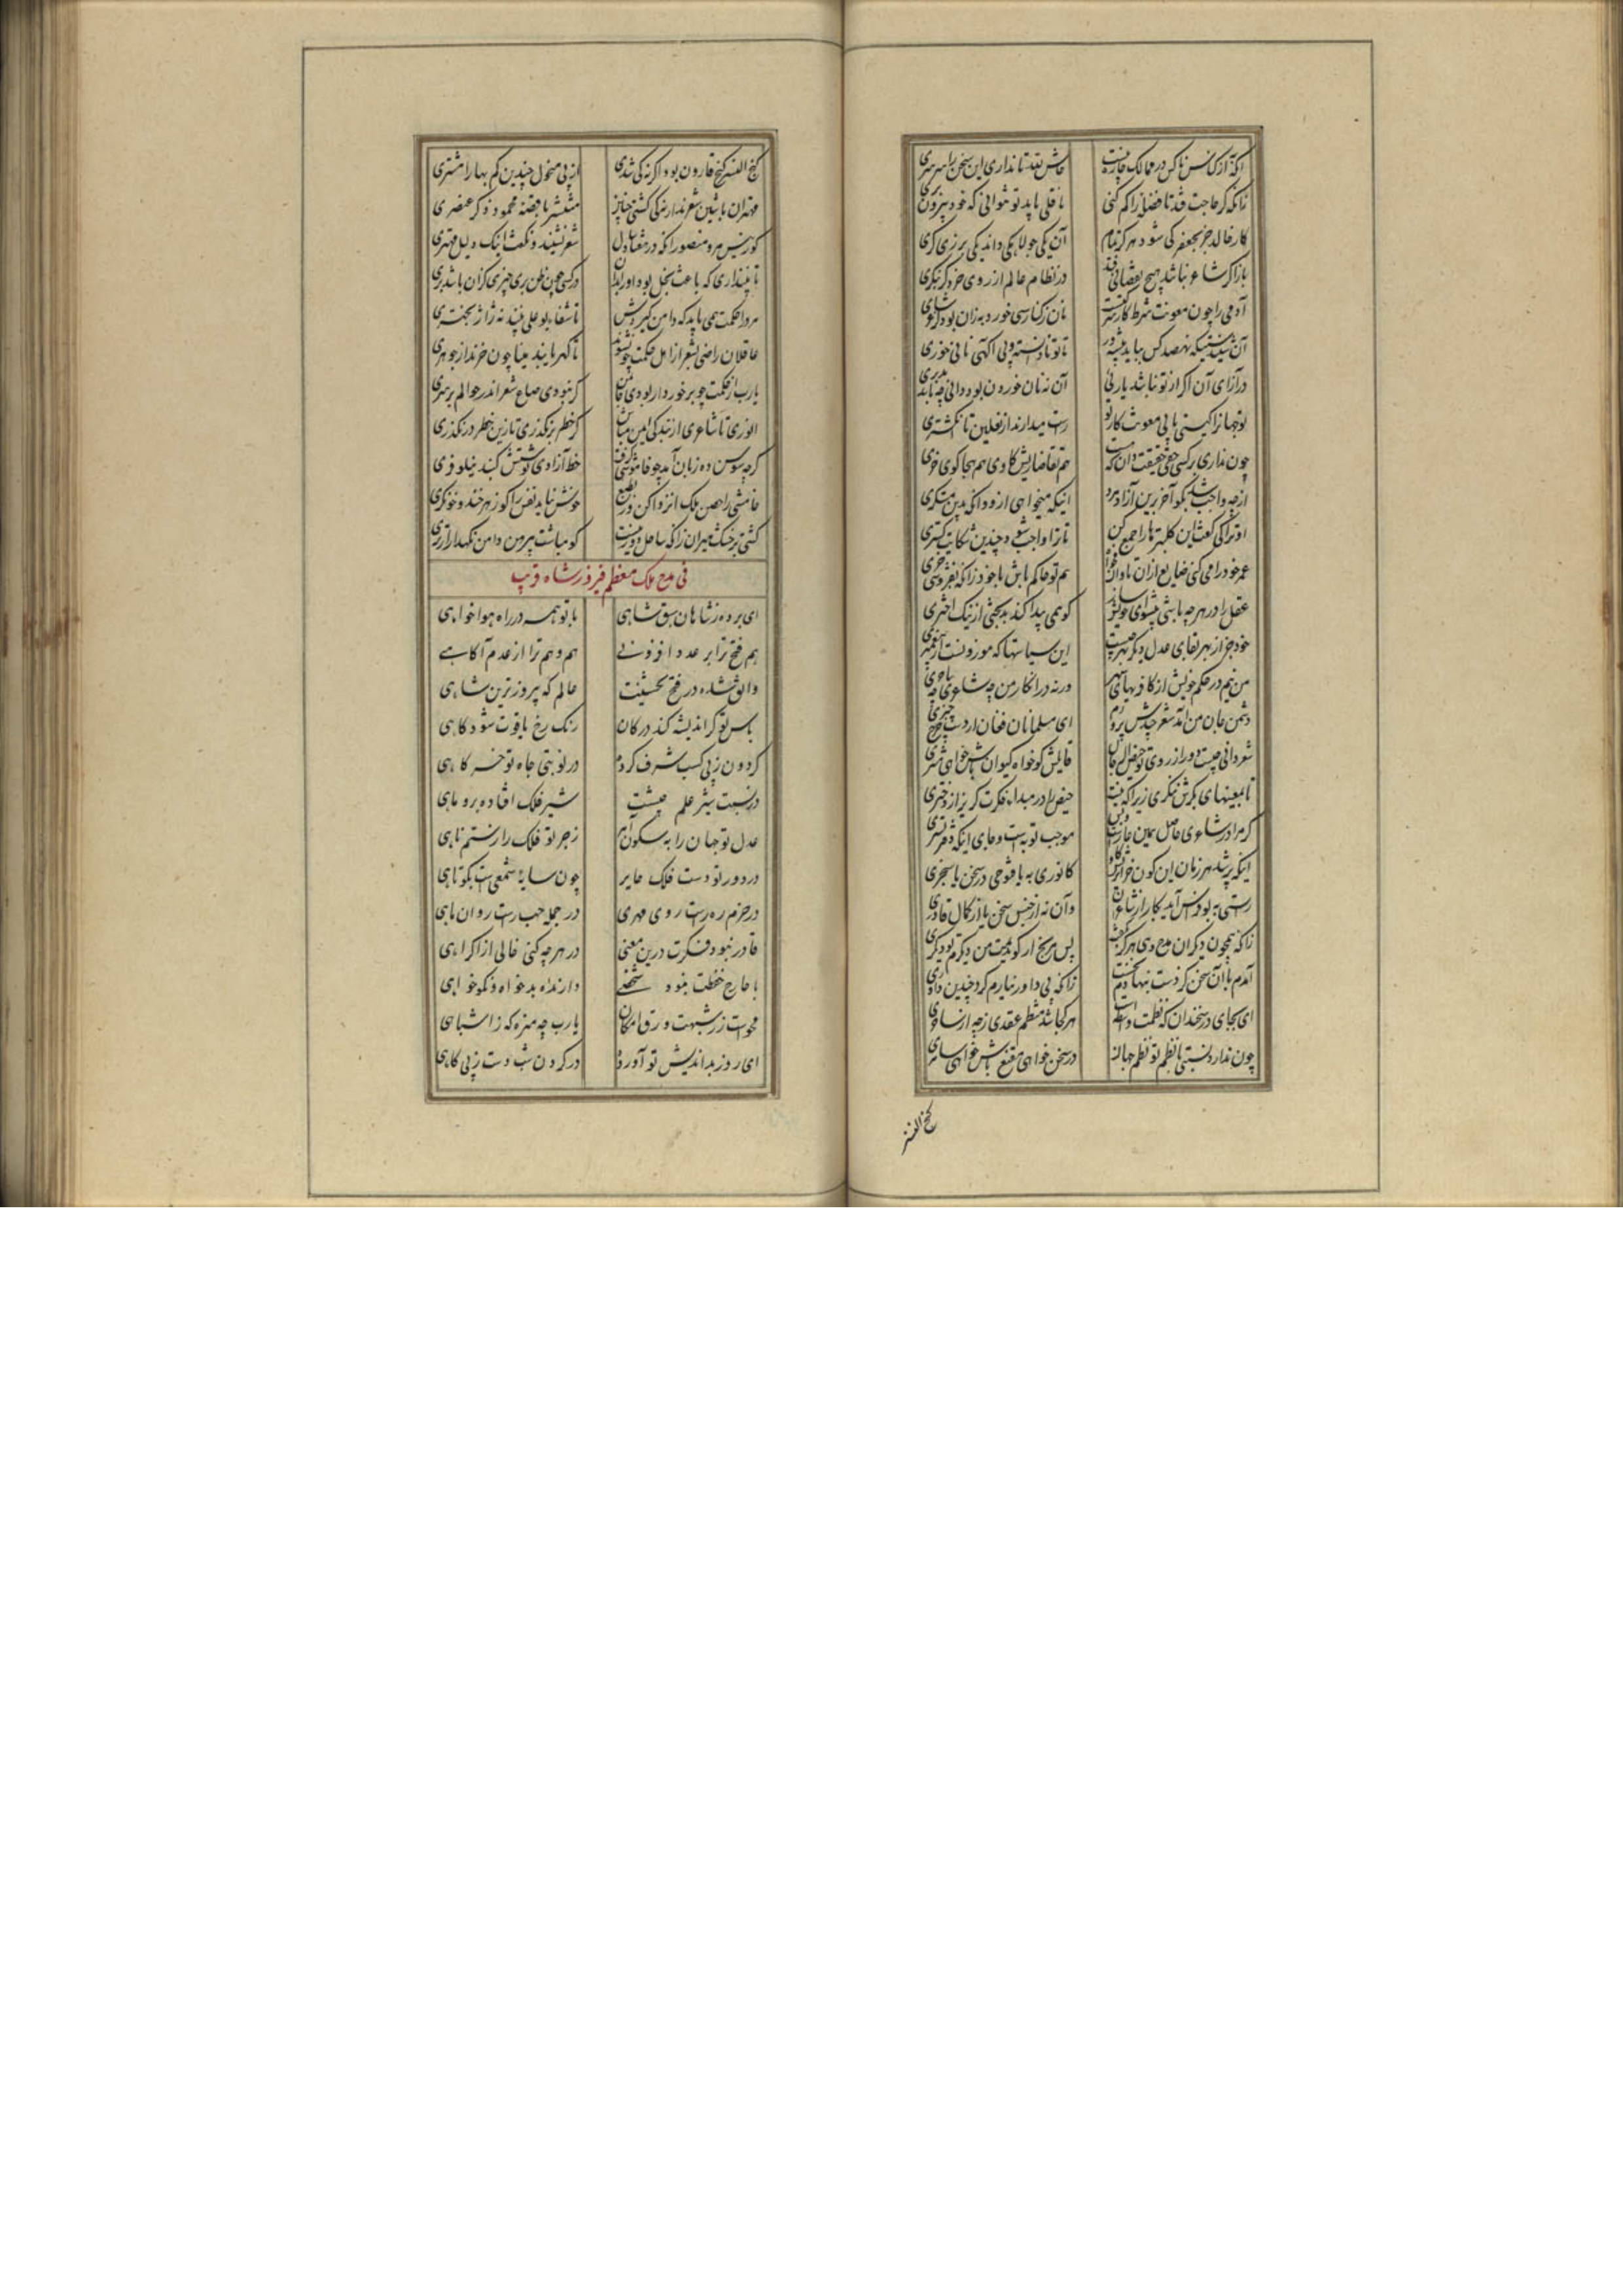 آنکه از کناس ناکس در ممالک چاره نیست حاش لله تا نداری این سخن را سرسری
زانکه گر حاجت فتد تا فضله را کم کنی ناقلی باید تو نتوانی که خود بیرون بری
کار خالد جز بجعفر کی شود هرگز تمام آن یکی جولاهکی داند یکی برزیگری
باز اگر شاعر نباشد هیچ نقصانی فتد در نظام عالم از روی خرد گر بنگری
آدمی را چون معونت شرط کار شرکتست نان ز کناسی خورد به زان بود کز شاعری
آن شنیدستی که نهصد کس بباید پیشه ور تا تو نادانسته و بی آگهی نانی خوری
در ازای آن اگر از تو نباشد یاریی آن نه نان خوردن بود دانی چه باشد مدبری
تو جهانرا کیستی تا بی معونت کار تو راست میدارند از نعلین تا انگشتری
چون نداری بر کسی حقی حقیقت دان که هست هم تقاضا ریش گاوی هم هجا گوی خری
از چه واجب شد بگو آخر برین آزاد مرد اینکه میخواهی ازو وانگه بدین مستکبری
او ترا کی گفت این کلپترها را جمع کن تا ترا واجب شود چندین شکایت گستری
عمر خود را می کنی ضایع ازان تاوان مخواه هم تو حاکم باش با خود زانکه نفروشی خری
عقل را در هر چه باشی پیشوای خویش ساز کو همی پیدا کند بدبختی از نیک اختری
خود جز از بهر بقای عدل دیگر بهر چیست این سیاستها که موروثست از پیغمبری
من نیم در حکم خویش از کافریهای سپهر ورنه در انکار من چه شاعری چه کافری
دشمن جان من آمد شعر چندش پرورم ای مسلمانان فغان از دست دشمن پروری
شعر دانی چیست دور از روی تو حیض الرجال قایلش گو خواه کیوان باش خواهی مشتری
تا بمعنیهای بکرش ننگری زیرا که نیست حیض را در مبداء فکرت گریز از دختری
گر مرا در شاعری حاصل همین عارست و بس موجب توبه است و جای اینکه دفتر بستری
اینکه پرسد هر زمان این کون خر آن ریش گاو کانوری به یا فتوحی در سخن یا سنجری
راستی به بوفراس آمد بکار از شاعران وان نه از جنس سخن یا از کمال قادری
زانکه همچون دیگران مدح و هجا هرگز نگفت پس مرنج ار گویمت من دیگرم تو دیگری
آمدم با آن سخن کز دست بنهادم نخست زانکه بی داور نیارم کرد چندین داوری
ای بجای در سخندانی که نظمت واسطه است هر کجا شد منتظم عقدی ز چه از ساحری
چون ندارد نسبتی با نظم تو نظم جهان در سخن خواهی مقنع باش خواهی سامری
گنج الفنر
گنج الفنر گنج قارون بود اگر نه کی شدی از پی منحول چندین کم بها را مشتری
مهتران با شین شعرند ار نه کی گشتی چنین منتشر با قصه محمود ذکر عنصری
کو رئیس مرو منصور آنکه در هفتاد سال شعر نشنید و نگفت اینک دلیل مهتری
تا نپنداری که باعث بخل بود او را بدان در کسی چون ظن بری چیزی کزان باشد بری
مرد را حکمت همی باید که دامن گیردش تا شفاء بوعلی بیند نه ژاژ بحتری
عاقلان راضی بشعر از اهل حکمت چون شوند تا گهر یابند مینا چون خرند از جوهری
یارب از حکمت چه برخوردار بودی جان من گر نبودی صاع شعر اندر جوالم بر سری
انوری تا شاعری از بندگی ایمن مباش کز خطر بر نگذری تا زین خطر در نگذری
گرچه سوسن ده زبان آمد چو خاموشی گرفت خط آزادی نوشتش گنبد نیلوفری
خامشی را حصن ملک انزوا کن ور بطبع خوش نیاید نفس را گو زهر خند و خون گری
کشتی بر خشک میران زانکه ساحل دور نیست گو مباشت پیرهن دامن نگهدار از تری
فی مدح ملک معظم فیروز شاه طیب
ای برده ز شاهان سبق شاهی با تو همه در راه هواخواهی
هم فتح ترا بر عدد افزونی هم وهم ترا از عدم آگاهی
واثق شده در فتح نخستینت عالم که پیروزترین شاهی
یاس تو گر اندیشه کند در کان رنگ رخ یاقوت شود کاهی
گردون ز پی کسب شرف کرده در نوبتی جاه تو خرگاهی
در نسبت شیر علم جیشت شیر فلک افتاده بروباهی
عدل تو جهان را به سکون آمر زجر تو فلک را ز ستم ناهی
در دور تو دست فلک جایر چون سایه شمعست بکوتاهی
در حزم ره راست روی مهری در حمله جهت راست روان ماهی
قادر نبود فکرت درین معنی در هر چه کنی خالی از اکراهی
با خارج حفظت نبود شخصی دارنده بدخواه و نکوخواهی
محوست ز شبهت ورق امکان یارب چه منزه که ز اشباهی
ای روز بداندیش تو آورده در گردن شب دست ز بی گاهی